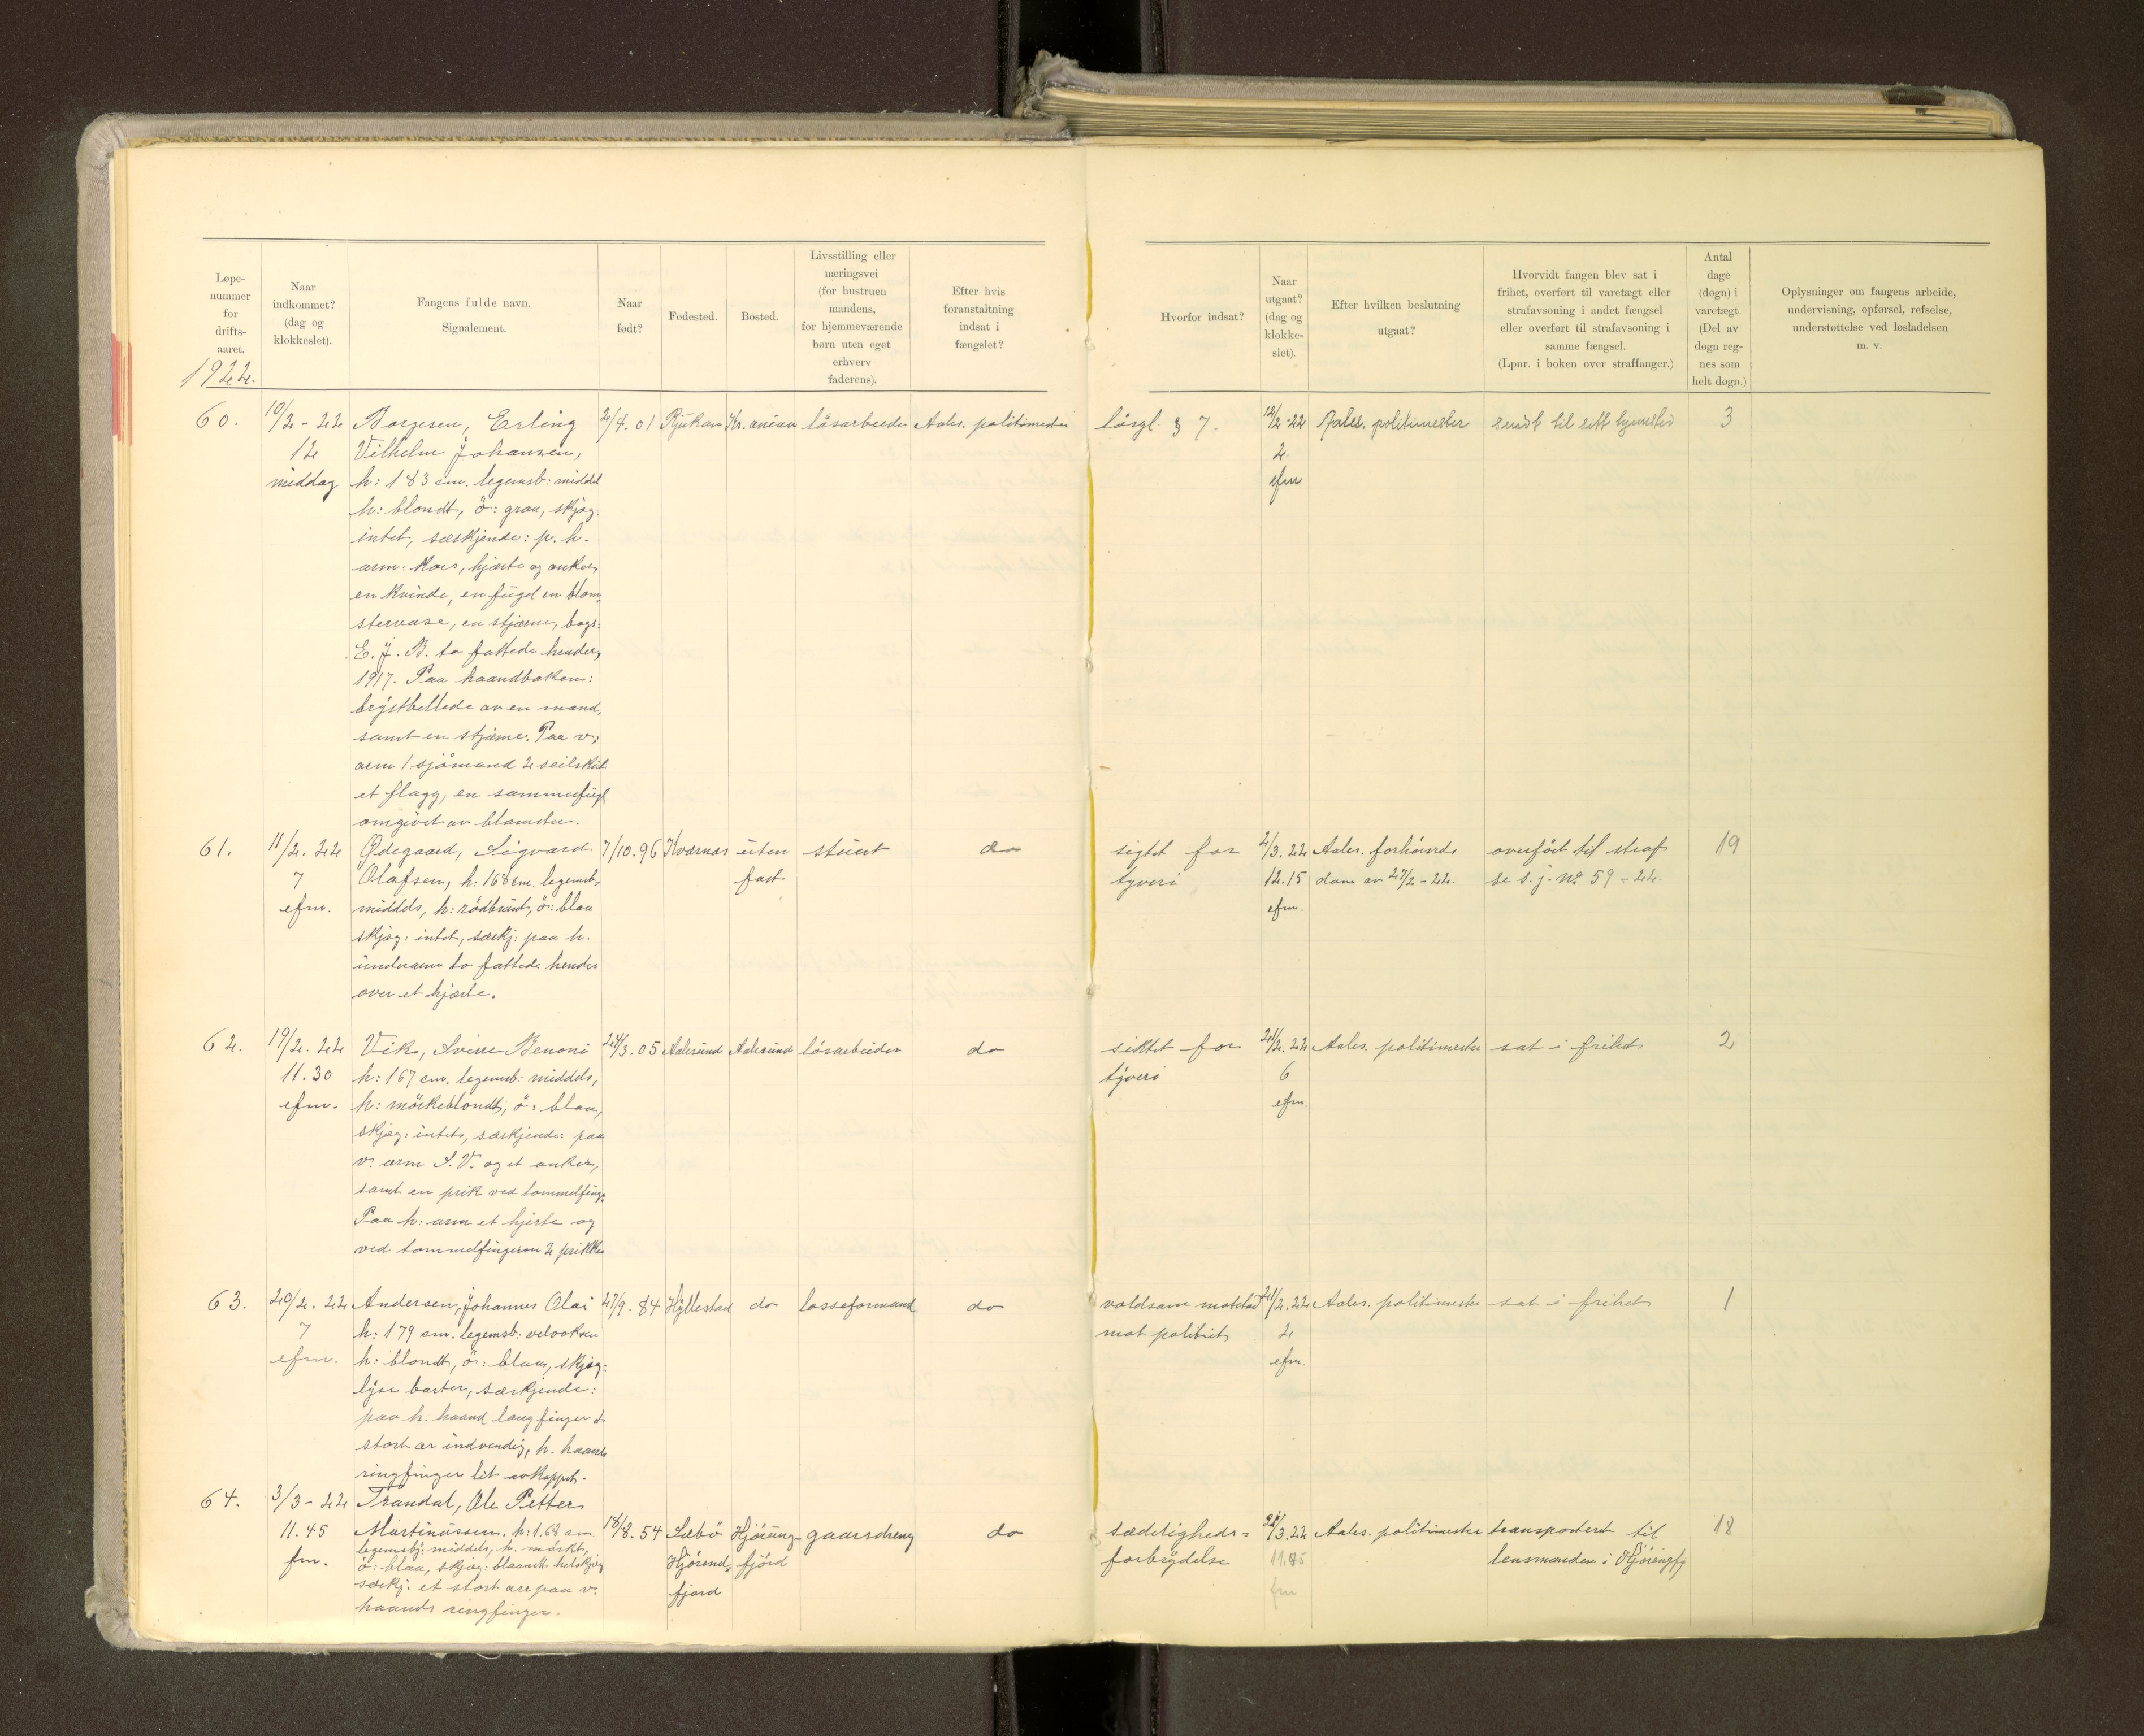 Løpe-
nummer
for
drifts-
aaret.
1922.
Naar
indkommet?
(dag og
klokkeslet).
Fangens fulde navn.
Signalement.
Naar
født?
Fødested.
Bosted.
Livsstilling eller
næringsvei
(for hustruen
mandens,
for hjemmeværende
børn uten eget
erhverv
faderens).
Efter hvis
foranstaltning
indsat i
fængslet?
Hvorfor indsat?
Naar
utgaat?
(dag og
klokke-
slet).
Efter hvilken beslutning
utgaat?
Hvorvidt fangen blev sat i
frihet, overført til varetægt eller
strafavsoning i andet fængsel
eller overført til strafavsoning i
samme fængsel.
(Lpnr. i boken over straffanger.)
Antal
dage
(døgn) i
varetægt.
(Del av
døgn reg-
nes som
helt døgn.)
Oplysninger om fangens arbeide,
undervisning, opførsel, refselse,
understøttelse ved løsladelsen
m. v.
60.
10/2 - 22
12
middag
Borgesen, Erling
Vilhelm Johansen,
h: 183 cm. legemsb: middel
h: blondt, ö: graa, skjæg:
intet, særkjende: p. h.
arm: Kors, hjærte og anker,
en Kvinde, en fugl en blom,
stervase, en stjærne, bogs:
E. J. B. to fattede hender,
1917. Paa haandbaken:
brystbillede av en mand,
samt en stjærne. Paa v,
arm 1 sjömand 2 seilskut
et flagg, en sammefugl
omgivet av blomster.
2/4. 01
Rjukan
Kr.aniam
lösarbeider
Aales. politimester
lösgl. § 7.
12/2-22
2
efm
Aales. politimester
sendt til sitt hjemsted
3
61.
11/2. 22
7
efm.
Ødegaard, Sigvard
Olafsen, h: 168 cm. legemsb.
middels, h: rödbrunt, ö: blaa
skjæg: intet, særkj: paa h.
underarm to fattede hender
over et hjærte.
7/10. 96
Kværnes
uten
fast
stuert
do
sigtet for
tyveri
2/3. 22
12.15
efm.
Aales. forhörsrds
dom av 27/2 - 22.
overfört til straf
se s. j. No 59 - 22.
19
62.
19/2. 22
11.30
efm.
Vik, Sverre Benoni
h: 167 cm. legemsb: middels,
h: mörkeblondt, ö: blaa,
skjæg: intet, særkjende: paa
v. arm S. V. og et anker,
samt en prik ved tommelfing.
Paa h: arm et hjerte og
ved tommelfingeren 2 prikker
24/3. 05
Aalesund
Aalesund
lösarbeider
do
siktet for
tyveri
21/2. 22
6
efm.
Aales. politimester
sat i frihet
2
63.
20/2. 22
7
efm.
Andersen, Johannes Olai
h: 179 cm. legemsb: velvoksen
h: blondt, ö: blaa, skjæg:
lyse barter, særkjende:
paa h. haand langfinger et
stort ar indvendig, h. haands
ringfinger lit avkappet.
27/9. 84
Hyllestad
do
losseformand
do
voldsom motstand
mot politiet
21/2. 22
2
efm.
Aales. politimester
sat i frihet
1
64.
3/3 - 22
11.45
fm.
Trandal, Ole Petter
Martinussen. h: 1.68 cm
legemsbj: middels, h. mörkt,
ö: blaa, skjæg: blaandt helskjæg
særkj. et stort arr paa v.
haands ringfinger.
18/8. 54
Sæbö
Hjörund,
fjord
Hjörung
fjörd
gaardsdreng
do
sædelighets-
forbrydelse
/3. 22
11.45
fm
Aales. politimester
transporteret til
lensmanden i Hjörungfj
18